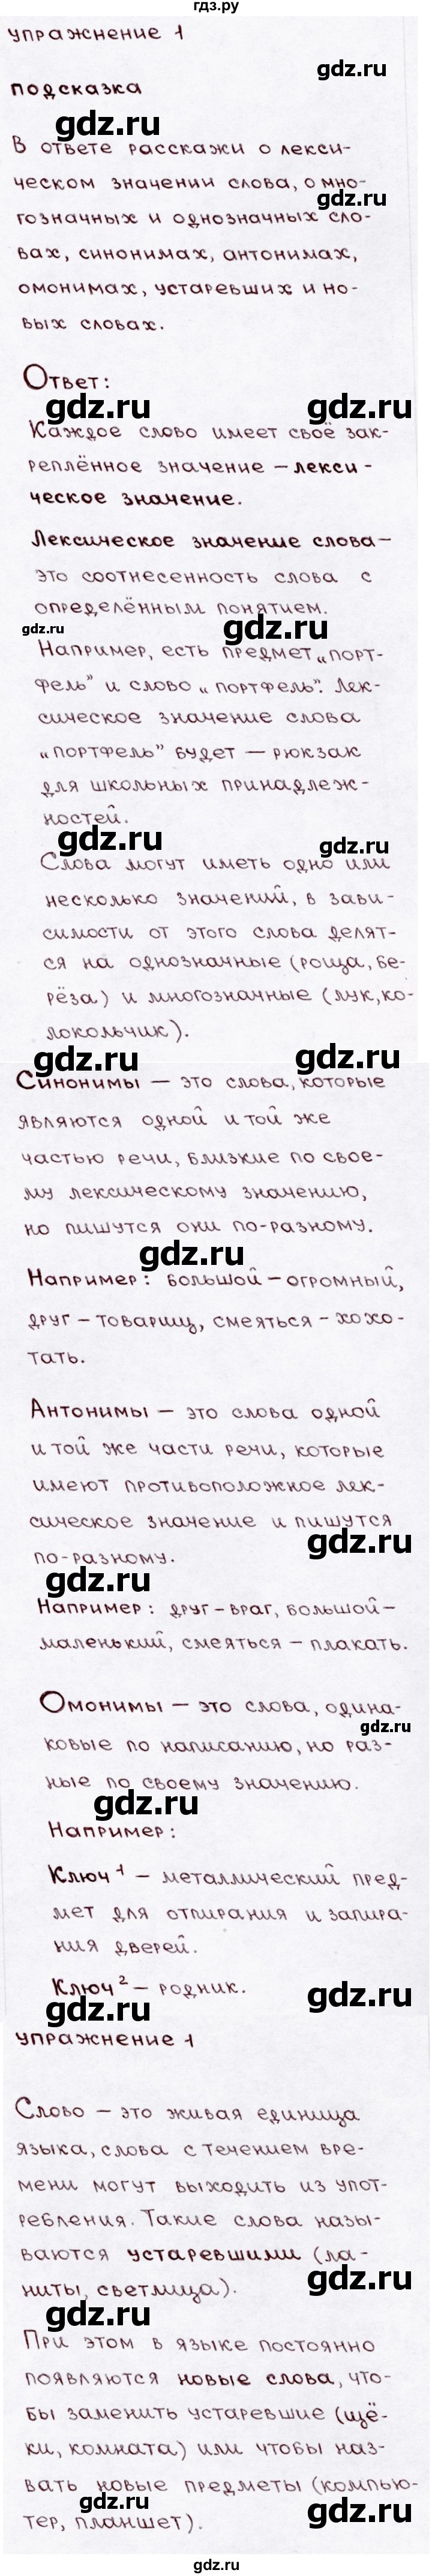 гдз.ру
упражнение 1
gdz.ru
подсказка
gdz.ru
В ответе расскажи о лекси-
ческом значении слова, о мно-
gdz.ru
гозначных и однозначных сло-
вах, синонимах, антонимах,
омонимах, устаревших и но-
вых словах.
Ответ:
gdz.ru gdz.ru
Каждое слово имеет своё зак-
реплённое значение – лекси-
ческое значение.
Лексическое значение слова –
это соотнесенность слова с
определённым понятием.
gdz.ru gdz.ru
Например, есть предмет „порт-
фель" и слово „портфель". Лек-
сическое значение слова
„портфель" будет – рюкзак
для школьных принадлеж-
ностей.
gdz.ru gdz.ru
Слова могут иметь одно или
несколько значений, в зави-
симости от этого слова делят-
ся на однозначные (роща, бе-
рёза) и многозначные (лук, ко-
локольчик).
gdz.ru gdz.ru
Синонимы – это слова, которые
являются одной и той же
частью речи, близкие по свое-
му лексическому значению,
но пишутся они по-разному.
gdz.ru
Например: большой – огромный,
друг – товарищ, смеяться – хохо-
тать.
Антонимы – это слова одной
и той же части речи, которые
имеют противоположное лек-
сическое значение и пишутся
gdz.ru
по-разному.
gdz.ru
Например: друг – враг, большой –
маленький, смеяться – плакать.
Омонимы – это слова, одина-
gdz.ru
ковые по написанию, но раз-
ные по своему значению.
gdz.ru
Например:
Ключ 1 – металлический пред-
мет для отпирания и запира-
ния дверей.
Ключ 2 – родник.
gdz.ru gdz.ru
упражнение 1
Слово – это живая единица
языка, слова с течением вре-
мени могут выходить из упот-
ребления. Такие слова назы-
ваются устаревшими (ла-
gdz.ru
ниты, светлица).
gdz.ru
При этом в языке постоянно
появляются новые слова, что-
бы заменить устаревшие (щё-
ки, комната) или чтобы наз-
вать новые предметы (компью-
gdz.ru gdz.ru
тер, планшет).
gdz.ru